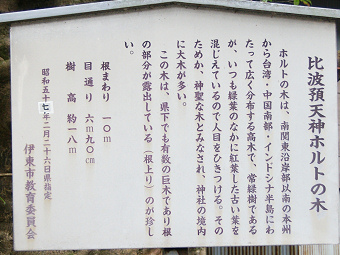 比波預天神ホルトの木
ホルトの木は、南関東沿岸部以南の本州
から台湾・中国南部・インドシナ半島にわ
たって広く分布する高木で、常緑樹である
が、いつも緑葉のなかに紅葉した古い葉を
混じえているので人目をひきつける。その
ためか、神聖な木とみなされ、神社の境内
に大木が多い。
この木は、県下でも有数の巨木であり根
の部分が露出している（根上り）のが珍し
い。
根まわり 一〇m
目通り 六m九〇cm
樹高 約一八m
昭和五十七年二月二十六日県指定
伊東市教育委員会